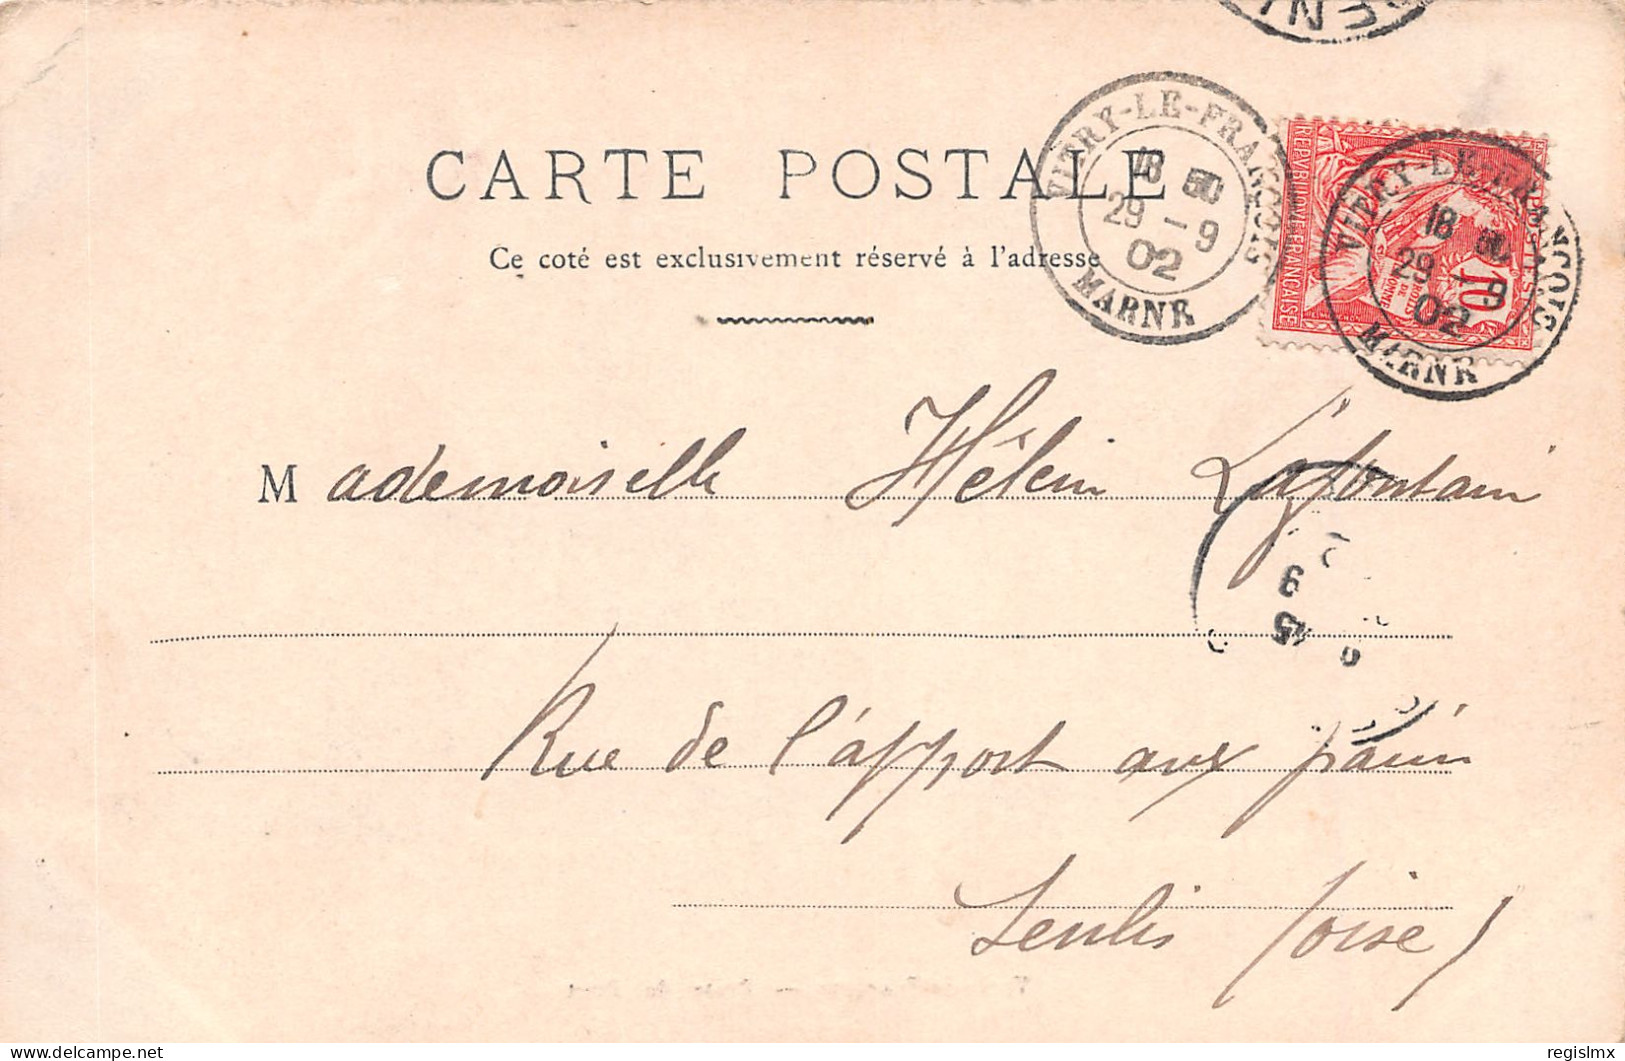 VITRY-LE-FRANÇOIS
18
29 - 9
02
MARNE
REPUBLIQUE FRANÇAISE
POSTES
10
DROITS DE L'HOMME
VITRY-LE-FRANÇOIS
18
29 - 9
02
MARNE
CARTE POSTALE
Ce coté est exclusivement réservé à l'adresse
Mademoiselle Hélein Lafontain
9
Rue de l'apport aux pain
Senlis (oise)
delcampe.net
regislmx